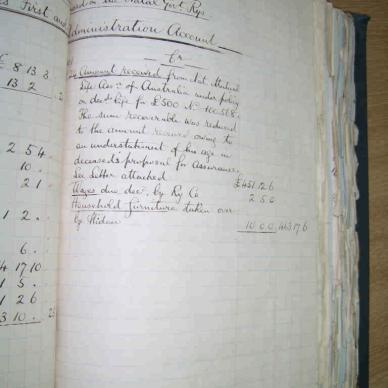 es First and
ward on the Natal Govt Rys
Administration Account
£ 8 13 3
Cr
13 2
By Amount received from Nat. Mutual
Life Assn of Australia under policy
on decd's life for £500 No
The sum recoverable was reduced
to the amount received owing to
an understatement of his age in
deceased's proposal for Assurance
See letter attached £451 12 6
Wages due decd. by Ry Co 2 5 0
Household furniture taken over
by Widow 10 0 0 463 17 6
2 5 4
10
2 1
1 2
6
4 17 10
1 5
1 2 6
3 10